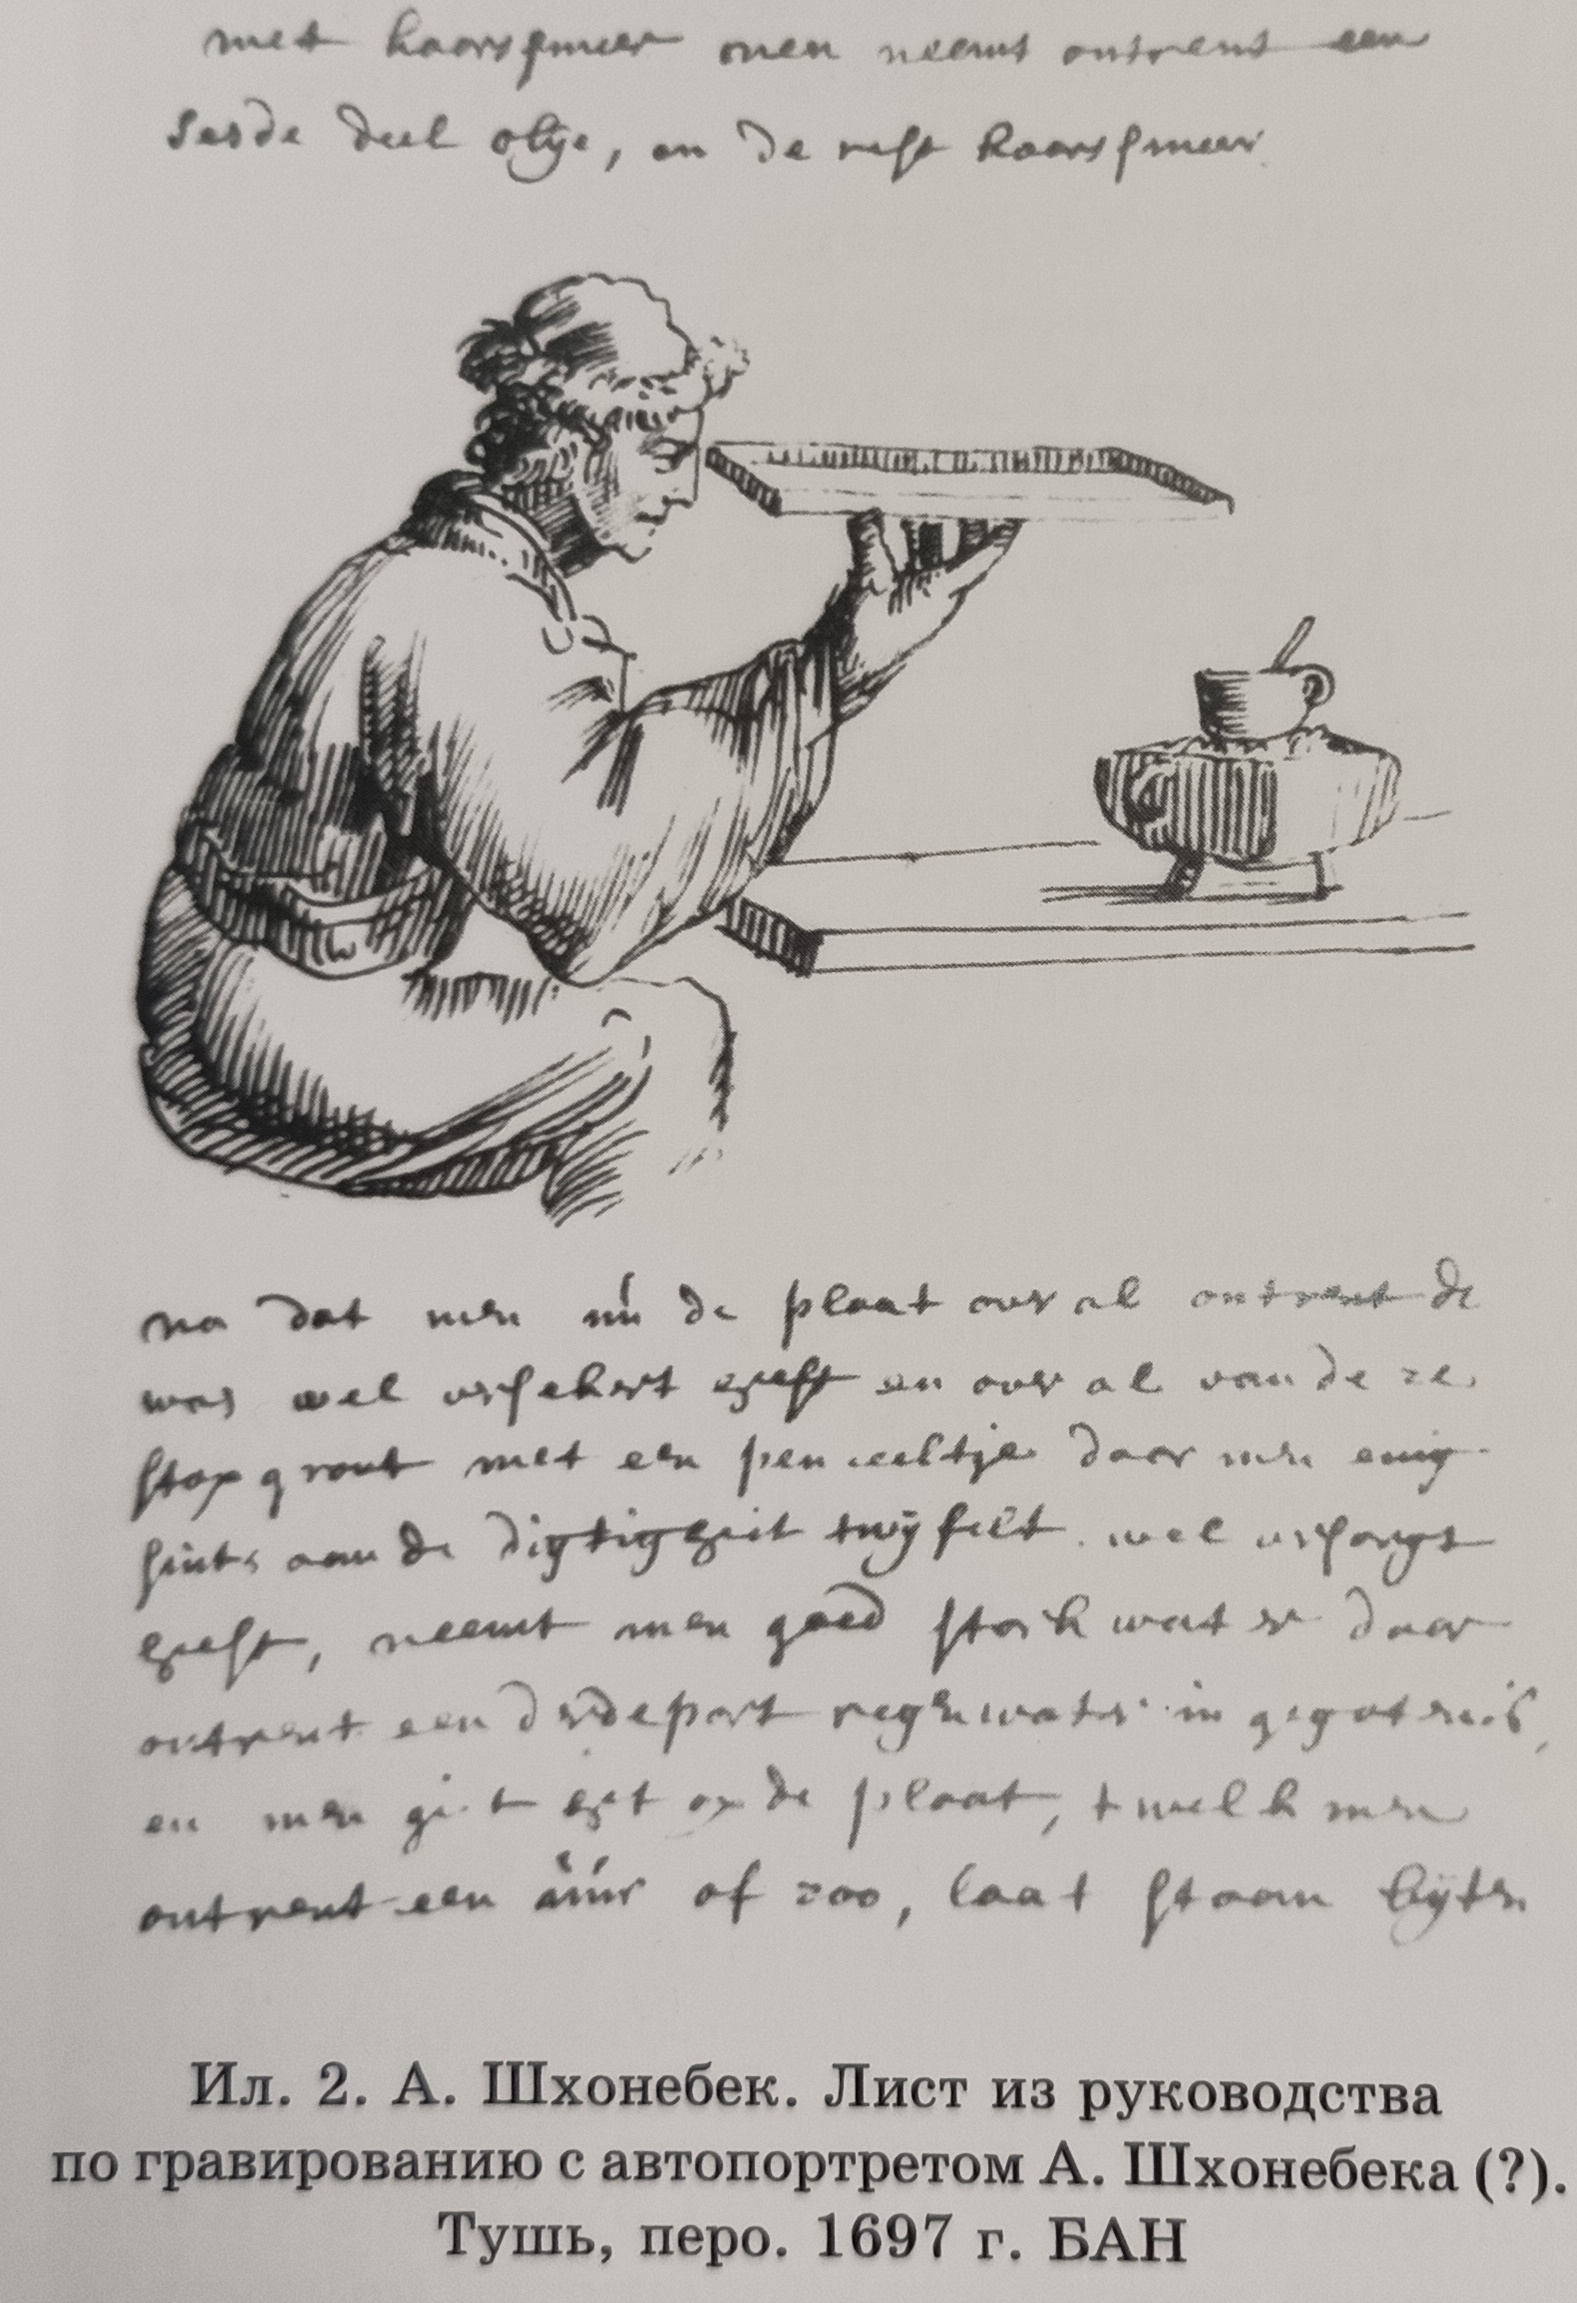 met kaarssmeer men neemt ontrent een
sesde deel olije, en de rest kaarssmeer
na dat men nú de plaat over al ontrent de
was wel versekert heeft en over al van deze
stopgront met een penceeltje daar men enig
sints aan de digtigheit twijfelt wel versorgt
heeft, neemt men goed sterk water daar
ontrent een derdepart regenwater in gegoten is,
en men giet het op de plaat, twelk men
ontrent een úúr of zoo, laat staan bijten
Ил. 2. А. Шхонебек. Лист из руководства
по гравированию с автопортретом А. Шхонебека (?).
Тушь, перо. 1697 г. БАН